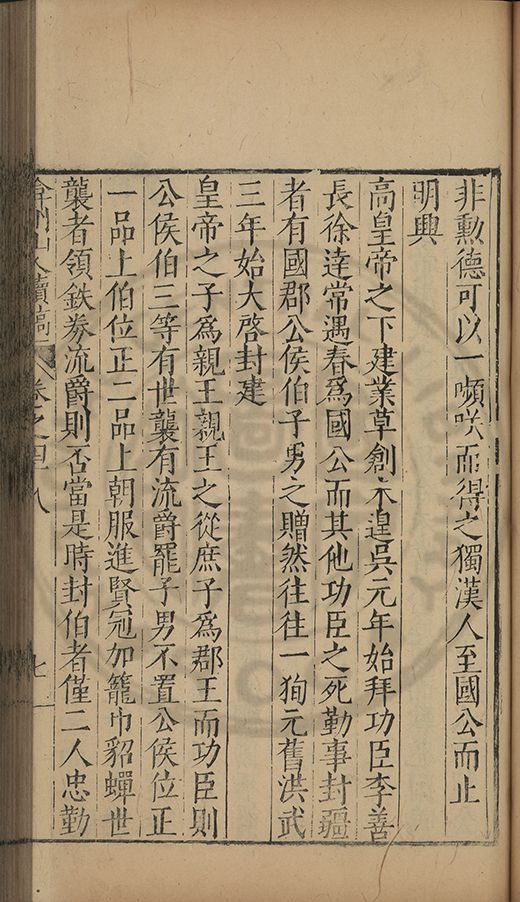 非勲德可以一嚬咲而得之獨漢人至國公而止
明興
高皇帝之下建業草創未遑吳元年始拜功臣李善
長徐達常遇春爲國公而其他功臣之死勤事封疆
者有國郡公侯伯子男之贈然往往一狥元舊洪武
三年始大啓封建
皇帝之子爲親王親王之從庶子爲郡王而功臣則
公侯伯三等有世襲有流爵罷子男不置公侯位正
一品上伯位正二品上朝服進賢冠加籠巾貂蟬世
襲者領鉄券流爵則否當是時封伯者僅二人忠勤
弇州山人續稿 卷之 八 七